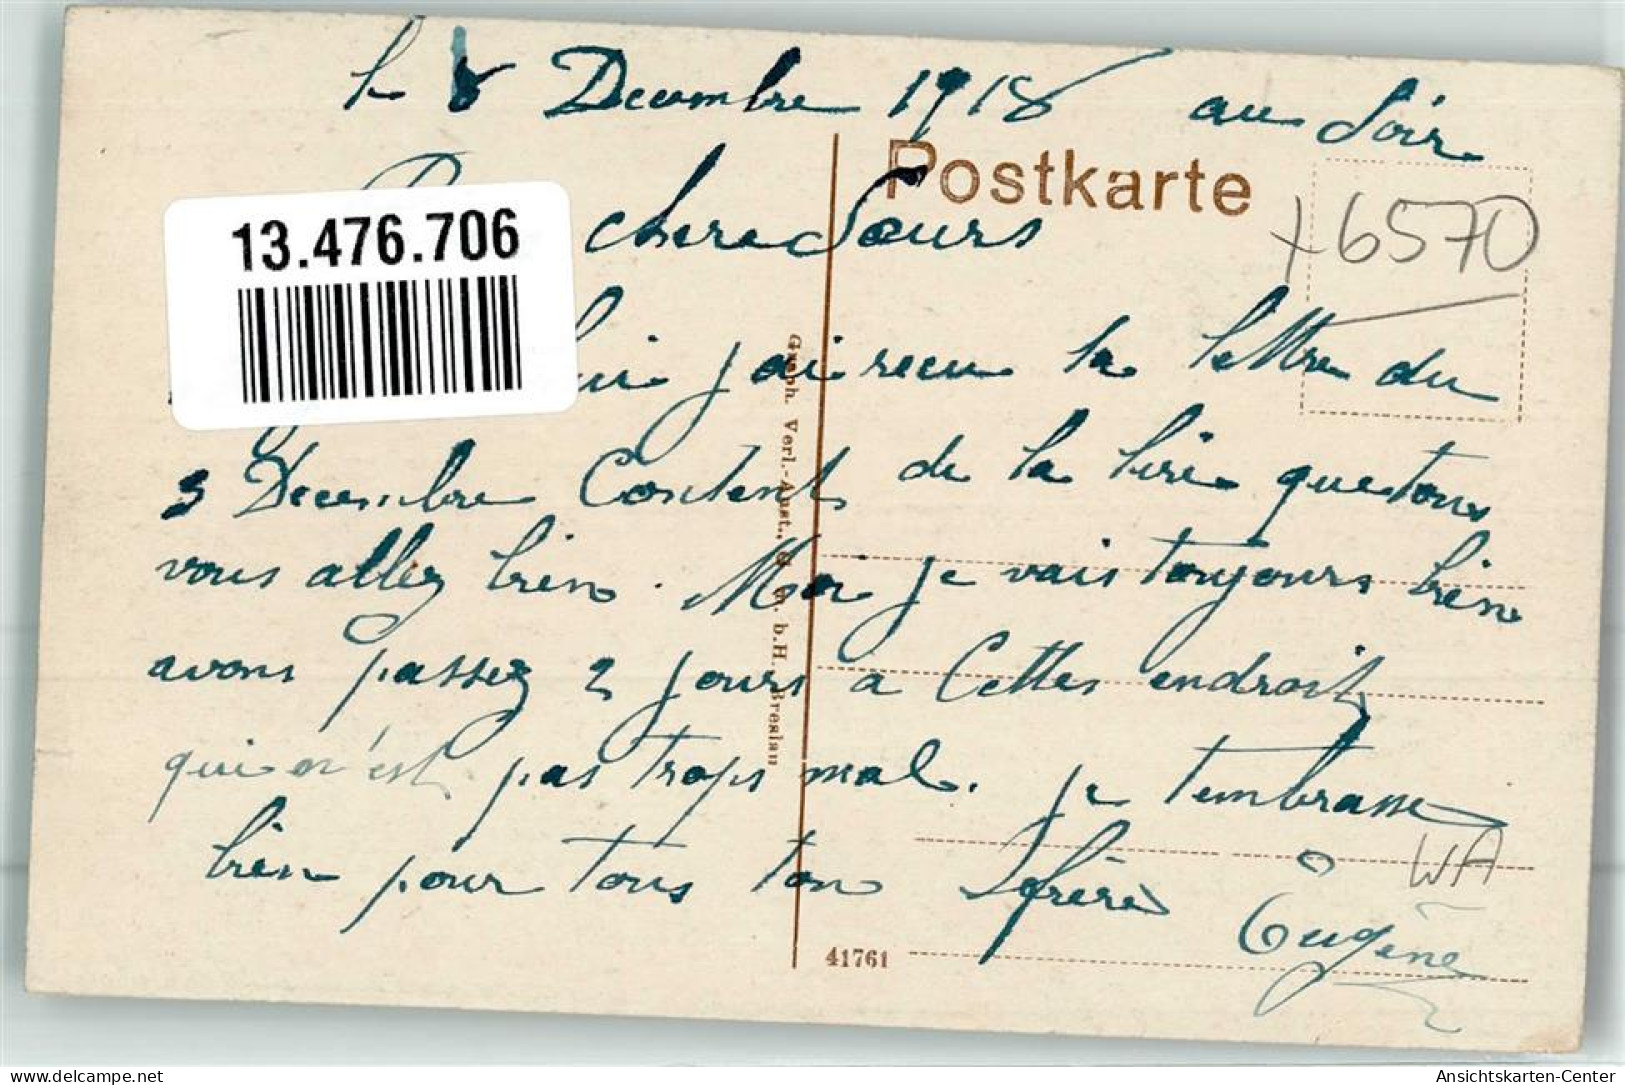 le 8 Decembre 1918 au Soir
Postkarte
13.476.706
chere Sœurs
+6570
j'ai recu la lettre du
3 Decembre Content de la lire que tous
vous allez bien. Moi je vais toujours bien
avons passez 2 jours a Cettes endroit
qui n'est pas trops mal. je t'embrasse
bien pour tous ton frère Eugène
WA
Graph. Verl.-Anst., G. m. b. H. Breslau
41761
delcampe.net
Ansichtskarten-Center